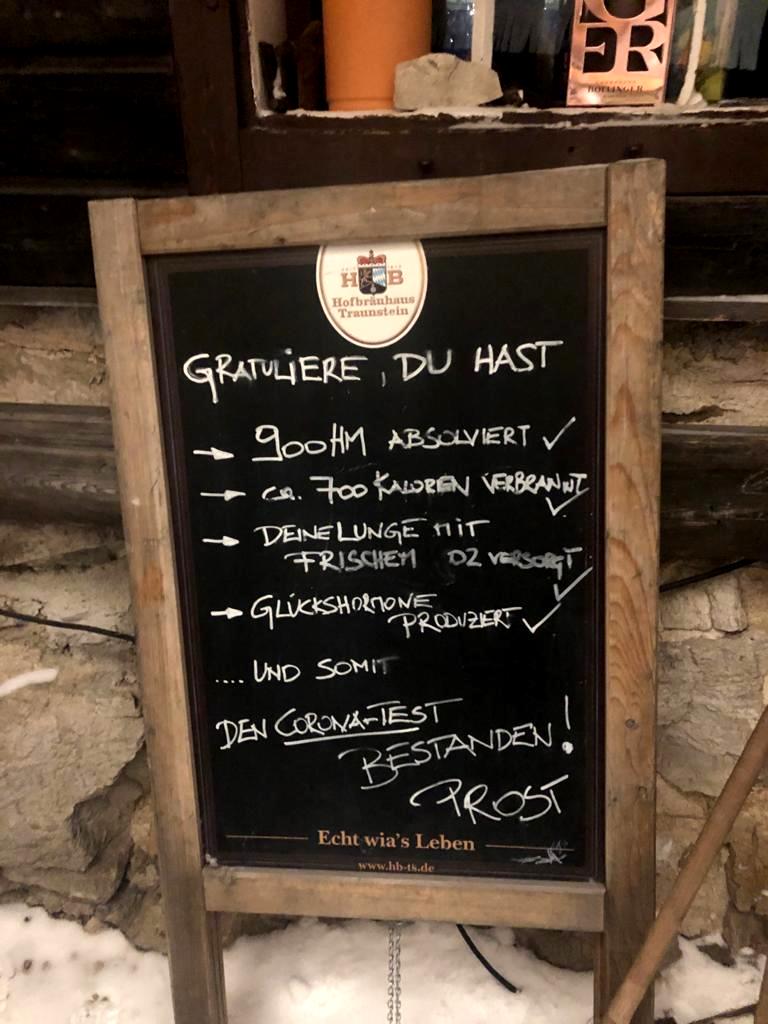 ER
BOLLINGER
H B
Hofbräuhaus
Traunstein
GRATULIERE, DU HAST
→ 900HM ABSOLVIERT ✓
→ ca. 700 KALOREN VERBRANNT ✓
→ DEINE LUNGE MIT
FRISCHEM O2 VERSORGT ✓
→ GLÜCKSHORMONE
PRODUZIERT ✓
.... UND SOMIT
DEN CORONA-TEST
BESTANDEN!
PROST
Echt wia's Leben
www.hb-ts.de